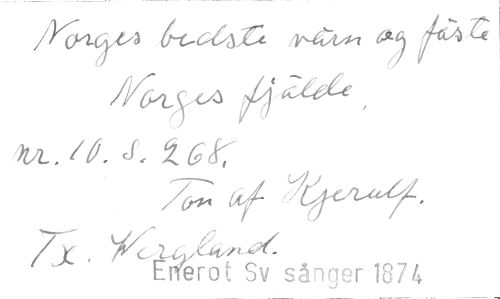 Norges bedste värn og fäste
Norges fjälde,
nr. 10. S. 268.
Ton af Kjerulf.
Tx. Wergland.
Enerot Sv sånger 1874